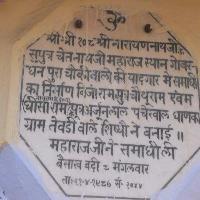 ॐ
श्री श्री १०८ श्री नारायणनाथजी के
सुपुत्र चेतनाथजी महाराज स्थान गोवर
धन पुरा चौकी वालो की यादगार में समाधी
का निर्माण बिजोराम सुत्रोथुराम रवम
सुपुत्र अर्जुनलाल पचेरवाल धाणका
ग्राम तेवडी वाले शिष्यो ने बनाई ।।
महाराज जी ने समाधी ली
बैसाख वदी ८ मंगलवार
ता: २१-४-१९८७ सं. २०४४